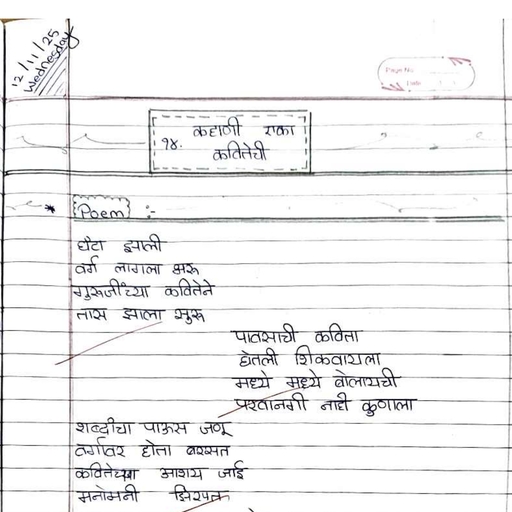 12/11/25
Wednesday
Page No.
Date
१४. कहाणी एका
कवितेची
* Poem :-
घंटा झाली
वर्ग लागला भरू
गुरुजींच्या कवितेने
तास झाला सुरू
पावसाची कविता
घेतली शिकवायला
मध्ये मध्ये बोलायची
परवानगी नाही कुणाला
शब्दांचा पाऊस जणू
वर्गावर होता बरसत
कवितेचा आशय जाई
मनोमनी झिरपत